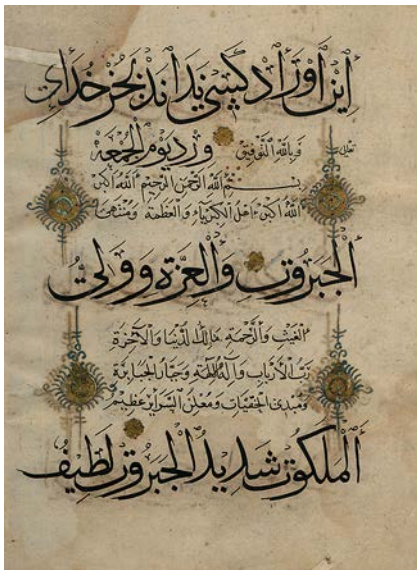 این اوراد کسی نداند بجز خدای
تعالی
وبالله التوفیق ورد یوم الجمعة
بسم الله الرحمن الرحیم الله اکبر
الله اکبر اهل الکبریاء والعظمة ومنتهی
الجبروت والعزة وولی
الغیث والرحمة مالک الدنیا والآخرة
رب الأرباب وإله الآلهة وجبار الجبابرة
ومبدئ الخفیات ومعلن السرائر عظیم
الملکوت شدید الجبروت لطیف